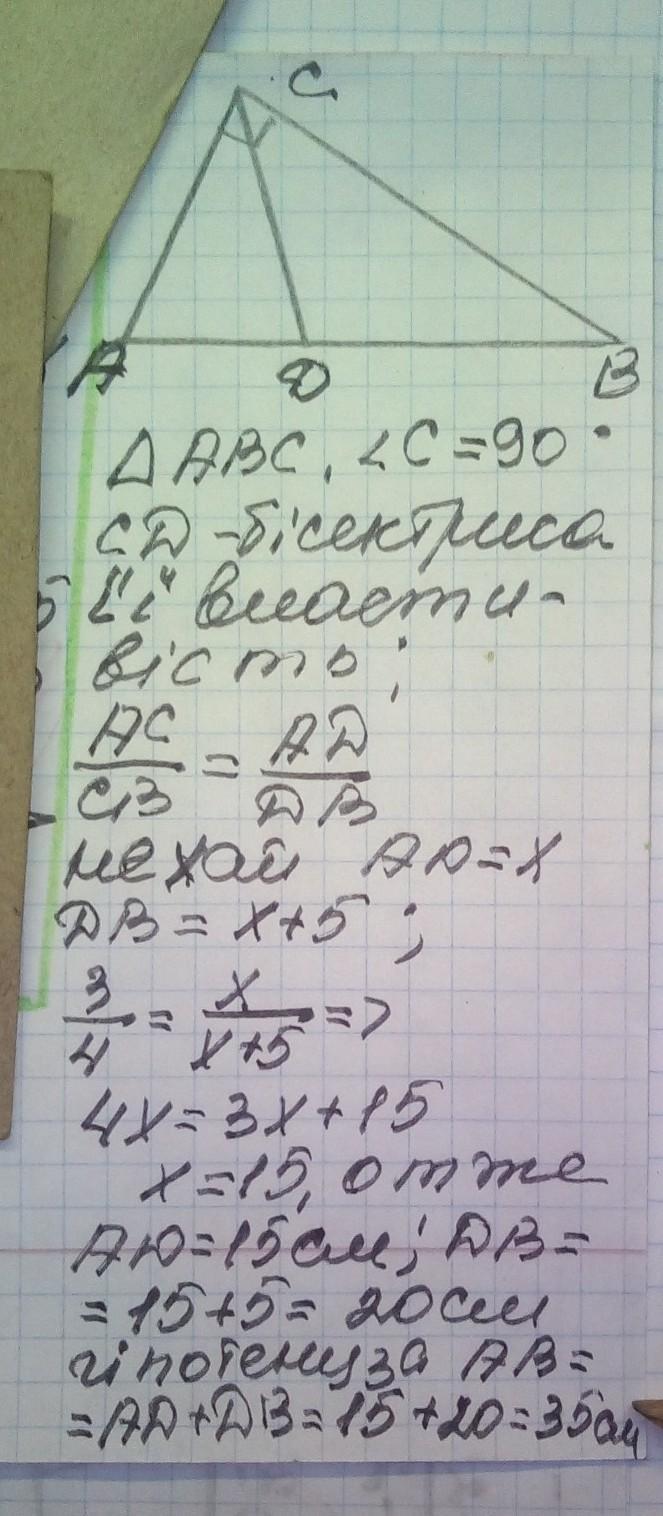 C
A D B
△ABC, ∠C=90°
CD-бісектриса
Її власти-
вість;
AC/CB = AD/DB
нехай AD=x
DB = x+5;
3/4 = x/(x+5) =>
4x=3x+15
x=15, отже
AD=15см; DB=
=15+5= 20см
гіпотенуза AB=
=AD+DB=15+20=35см